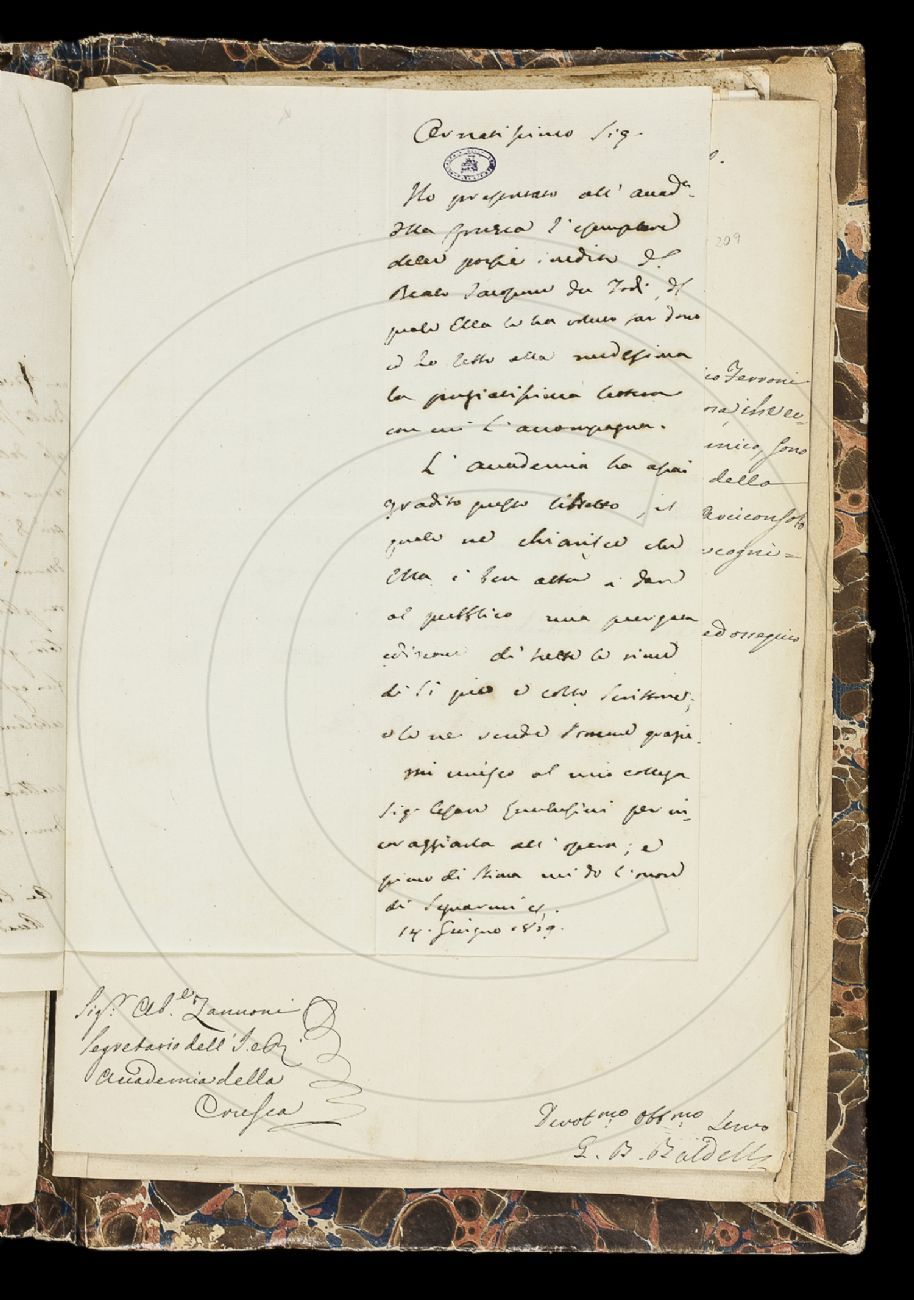 Ornatissimo Sig.
Ho presentato all' Accad.
della Crusca l' esemplare
delle poesie inedite del
Beato Jacopone da Todi, del
quale Ella le ha voluto far dono
ed ho letto alla medesima
la pregiatissima lettera
con cui l' accompagna.
L' Accademia ha assai
gradito questo libretto, il
quale ne chiarisce che
Ella è ben atta a dare
al pubblico una purgata
edizione di tutte le rime
di sì pio e colto Scrittore;
e le ne rende somme grazie.
Mi unisco al mio collega
Sig. per in-
coraggiarla all' opera; e
pieno di stima mi do l' onore
di segnarmi
14. Giugno 1819.
209
Ferroni
che ec-
unico, sono
della
Arciconsolo
ed ossequio
Sig.r Ab.e Zannoni
Segretario dell' I. e R.
Accademia della
Crusca
Devot.mo Obb.mo Servo
G. B. Baldelli